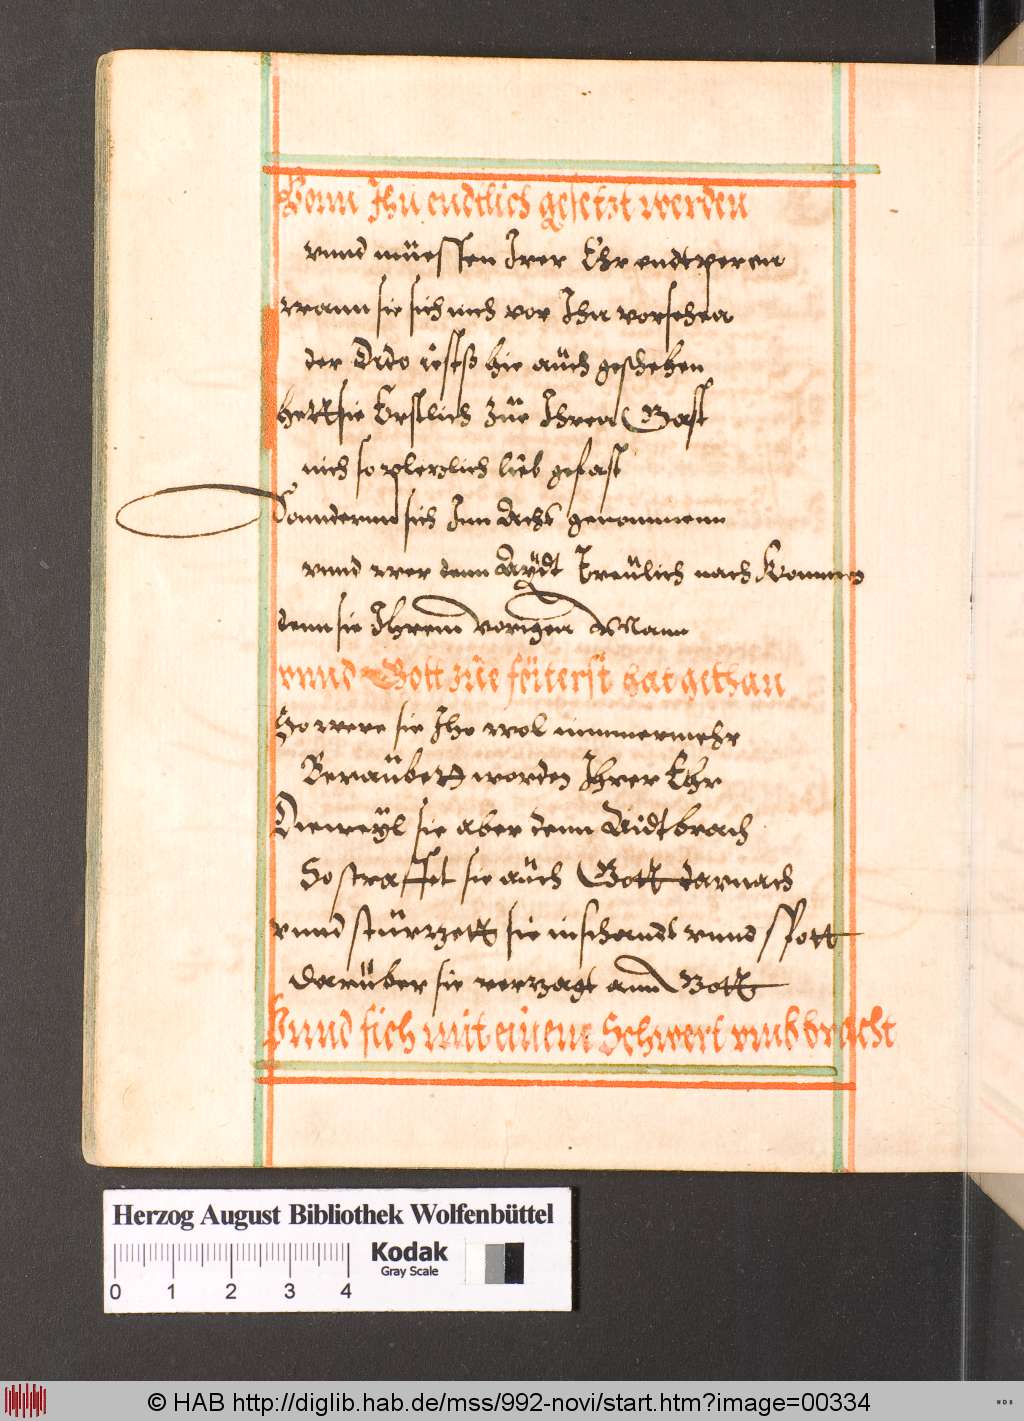 Vonn Ihn endtlich gesetzt werden
vnnd müessen Irer Ehr endtperen
wann sie sich nich vor Ihn vorsehen
der Dido istß hie auch geschehen
Hett sie Erstlich zue Ihren Gast
nich so plerzlich lieb gefast
Sonndernn sich Inn Acht genommenn
vnnd wer denn Aydt treulich nach Kommen
denn sie Ihrem vorigen Mann
vnnd Gott zue föterst hat gethan
So were sie Ihr wol nimmermehr
Beraubett worden Ihrer Ehr
Dieweyl sie aber denn Aidt brach
So straffet sie auch Gott darnach
vnnd stürzett sie in schandt vnnd spott
darüber sie verzagt ann Gott
Vnnd sich mit einem Schwert vmbbracht
Herzog August Bibliothek Wolfenbüttel
Kodak
Gray Scale
0 1 2 3 4
© HAB http://diglib.hab.de/mss/992-novi/start.htm?image=00334